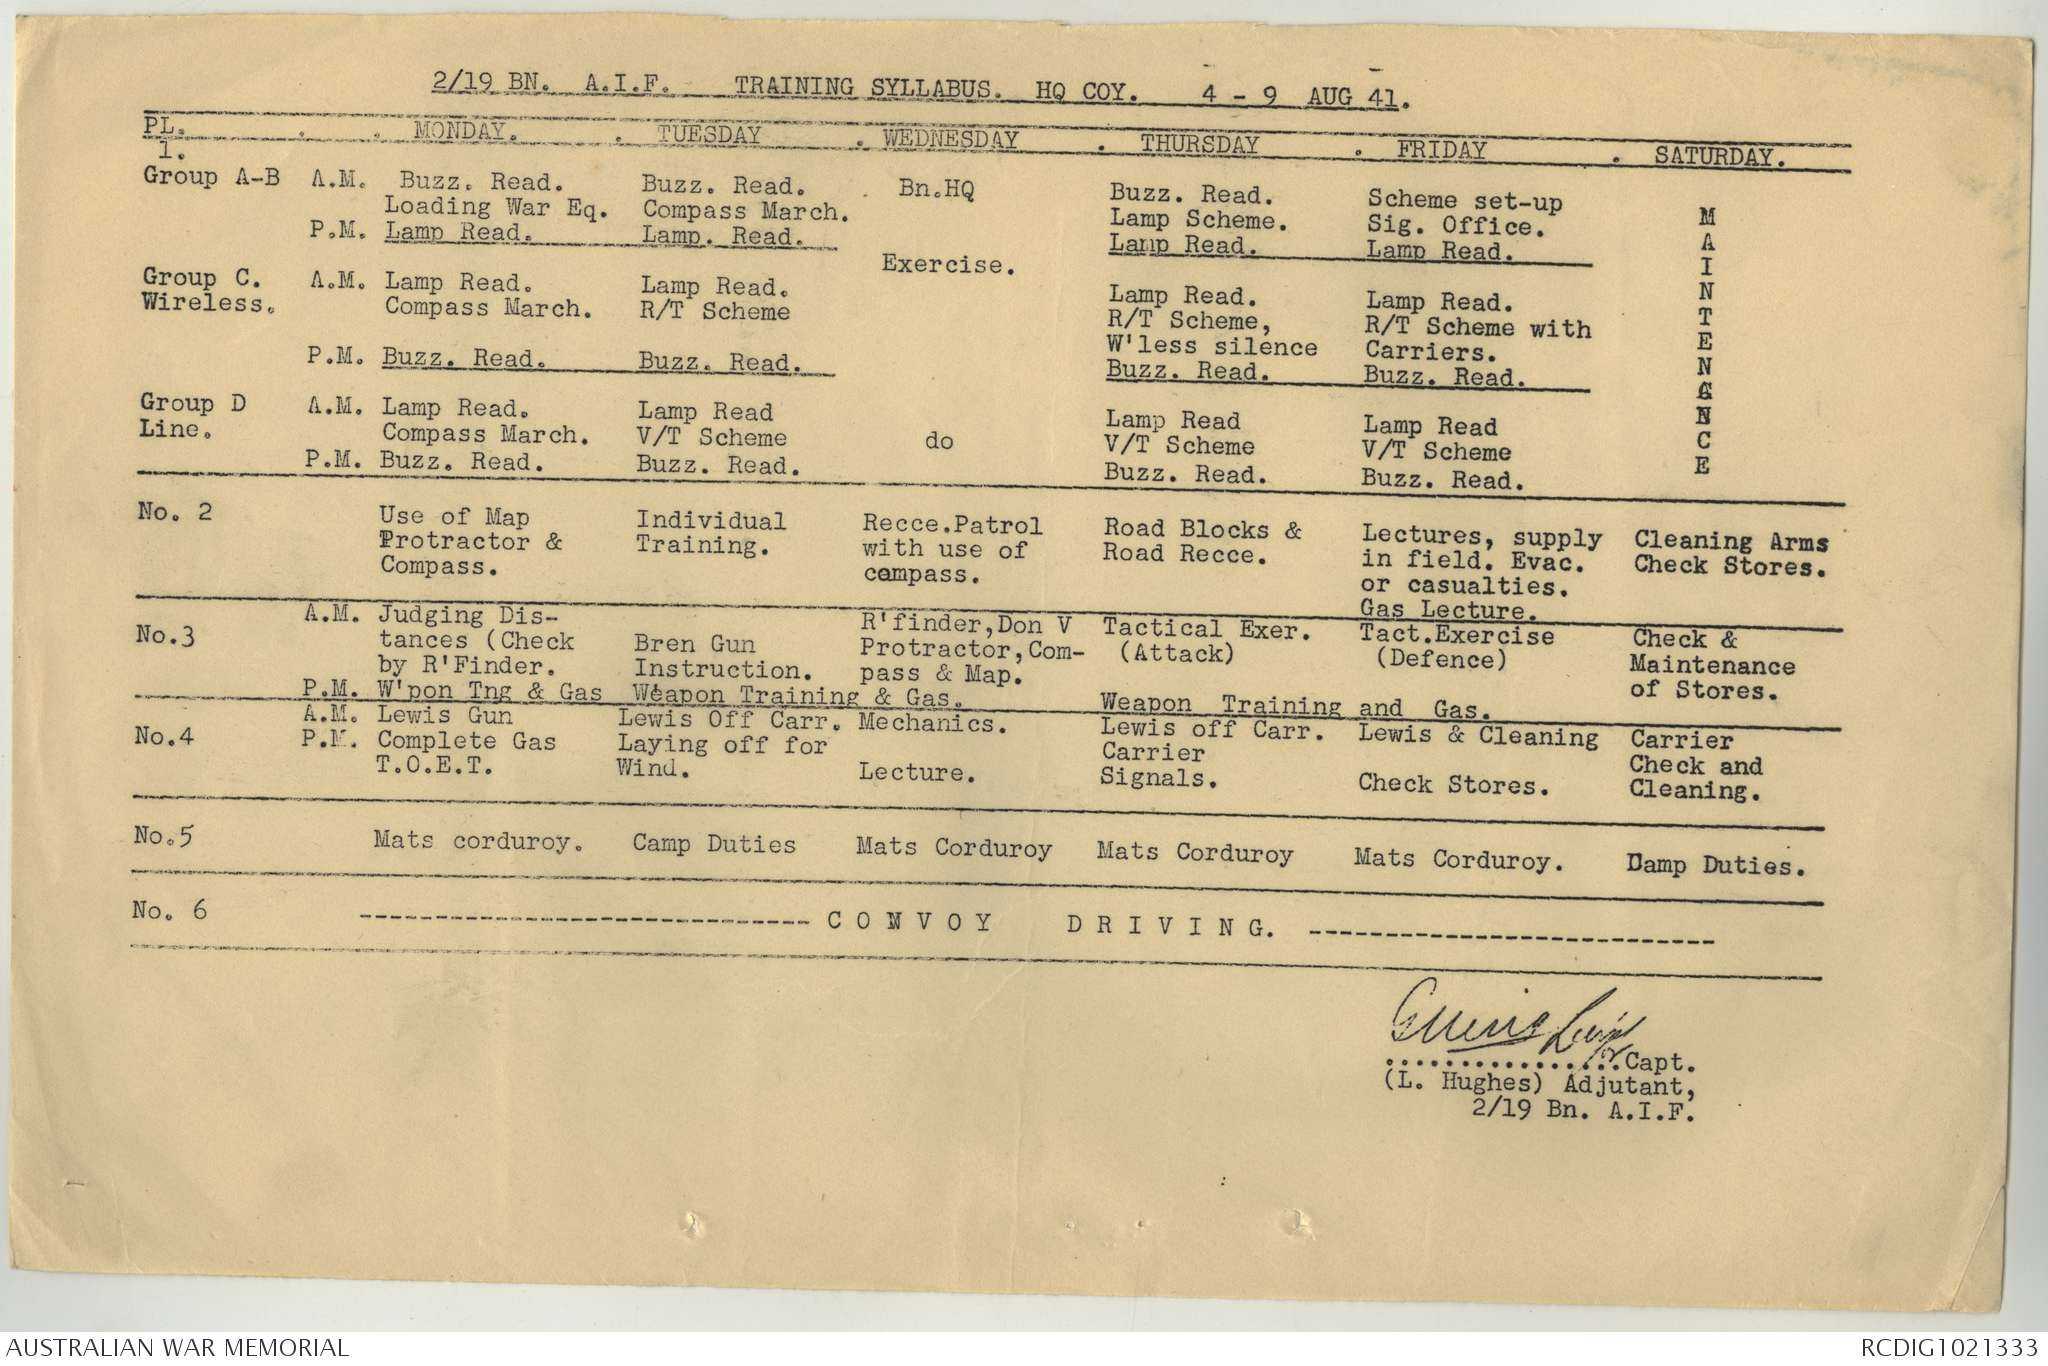 2/19 BN. A.I.F. TRAINING SYLLABUS. HQ COY. 4 - 9 AUG 41.
PL. . . MONDAY. . TUESDAY . WEDNESDAY . THURSDAY . FRIDAY . SATURDAY.
1.
Group A-B A.M. Buzz. Read. Buzz. Read. Bn.HQ Buzz. Read. Scheme set-up
Loading War Eq. Compass March. Lamp Scheme. Sig. Office.
P.M. Lamp Read. Lamp. Read. Exercise. Lamp Read. Lamp Read.
Group C. A.M. Lamp Read. Lamp Read. Lamp Read. Lamp Read.
Wireless. Compass March. R/T Scheme R/T Scheme, R/T Scheme with
W'less silence Carriers.
P.M. Buzz. Read. Buzz. Read. Buzz. Read. Buzz. Read.
Group D A.M. Lamp Read. Lamp Read Lamp Read Lamp Read
Line. Compass March. V/T Scheme do V/T Scheme V/T Scheme
P.M. Buzz. Read. Buzz. Read. Buzz. Read. Buzz. Read.
M
A
I
N
T
E
N
A
N
C
E
No. 2 Use of Map Individual Recce.Patrol Road Blocks & Lectures, supply Cleaning Arms
Protractor & Training. with use of Road Recce. in field. Evac. Check Stores.
Compass. compass. or casualties.
Gas Lecture.
A.M. Judging Dis- R'finder,Don V Tactical Exer. Tact.Exercise Check &
No.3 tances (Check Bren Gun Protractor,Com- (Attack) (Defence) Maintenance
by R'Finder. Instruction. pass & Map. of Stores.
P.M. W'pon Tng & Gas Weapon Training & Gas. Weapon Training and Gas.
A.M. Lewis Gun Lewis Off Carr. Mechanics. Lewis off Carr. Lewis & Cleaning Carrier
No.4 P.M. Complete Gas Laying off for Carrier Check and
T.O.E.T. Wind. Lecture. Signals. Check Stores. Cleaning.
No.5 Mats corduroy. Camp Duties Mats Corduroy Mats Corduroy Mats Corduroy. Damp Duties.
No. 6 ------------------------------ C O N V O Y D R I V I N G. ---------------------------
................Capt.
(L. Hughes) Adjutant,
2/19 Bn. A.I.F.
AUSTRALIAN WAR MEMORIAL
RCDIG1021333